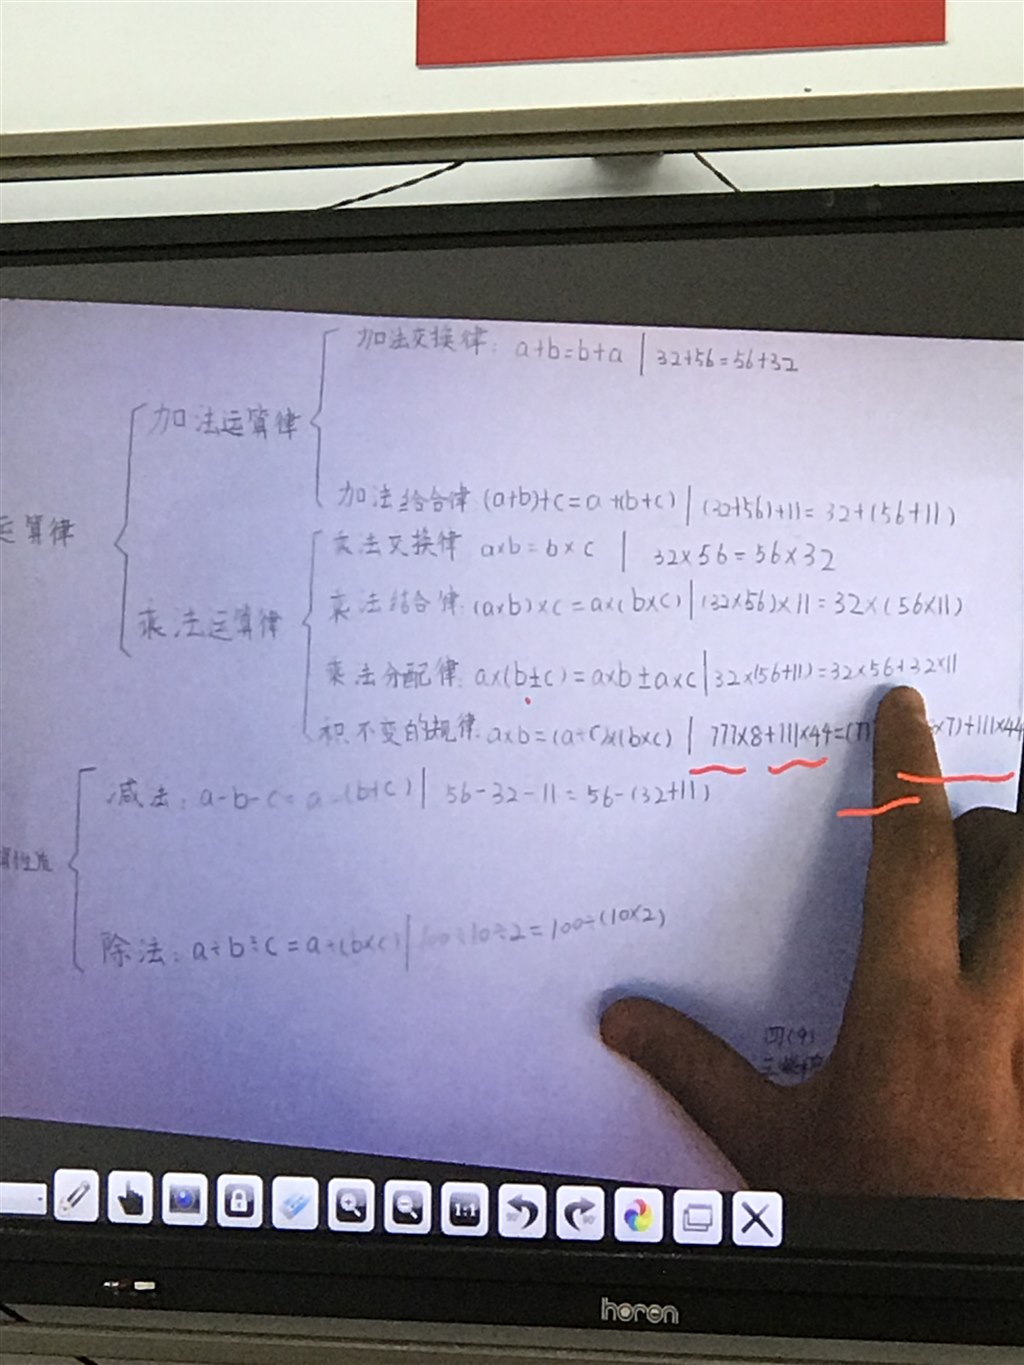 加法交换律: a+b=b+a | 32+56=56+32
加法运算律
加法结合律 (a+b)+c=a+(b+c) | (32+56)+11=32+(56+11)
运算律
乘法交换律 a×b=b×c | 32×56=56×32
乘法结合律: (a×b)×c=a×(b×c) | (32×56)×11=32×(56×11)
乘法运算律
乘法分配律: a×(b±c)=a×b±a×c | 32×(56+11)=32×56+32×11
积不变的规律: a×b=(a÷c)×(b×c) | 777×8+111×44=(7 ×7)+111×44
减法: a-b-c=a-(b+c) | 56-32-11=56-(32+11)
除法: a÷b÷c=a÷(b×c) | 100÷10÷2=100÷(10×2)
四(9)
1:1
90°
90°
horon